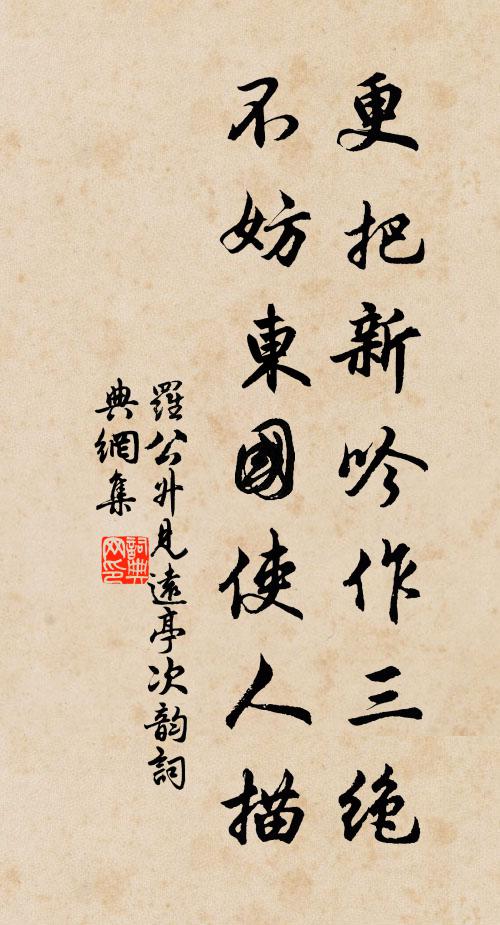 更把新吟作三絶
不妨東國使人描
羅公升見遠亭次韵詞
典網集
詞典
网印